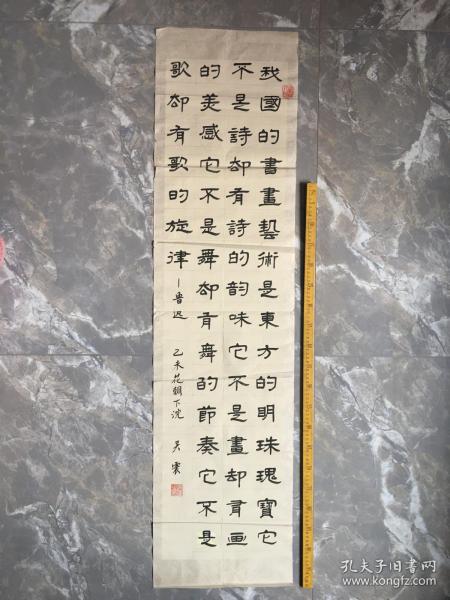 我國的書畫藝術是東方的明珠瑰寶它
不是詩却有詩的韵味它不是畫却有画
的美感它不是舞却有舞的節奏它不是
歌却有歌的旋律
—魯迅
乙未花朝下浣
孔夫子旧书网
www.kongfz.com